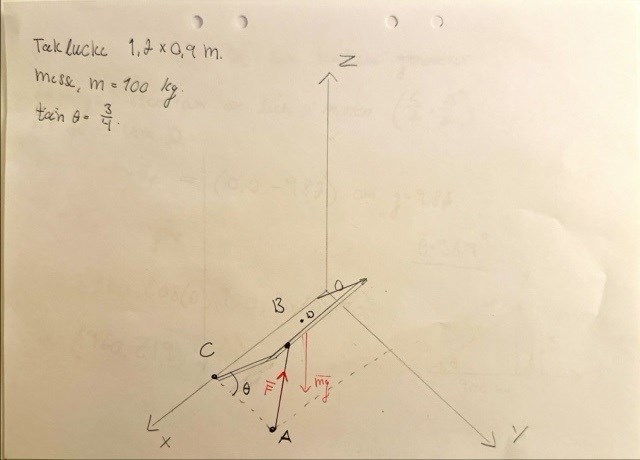 Taklucka 1,2 x 0,9 m.
massa, m = 100 kg.
tan θ = 3/4.
Z
O
B
D
C
θ
F
mg
A
X
Y